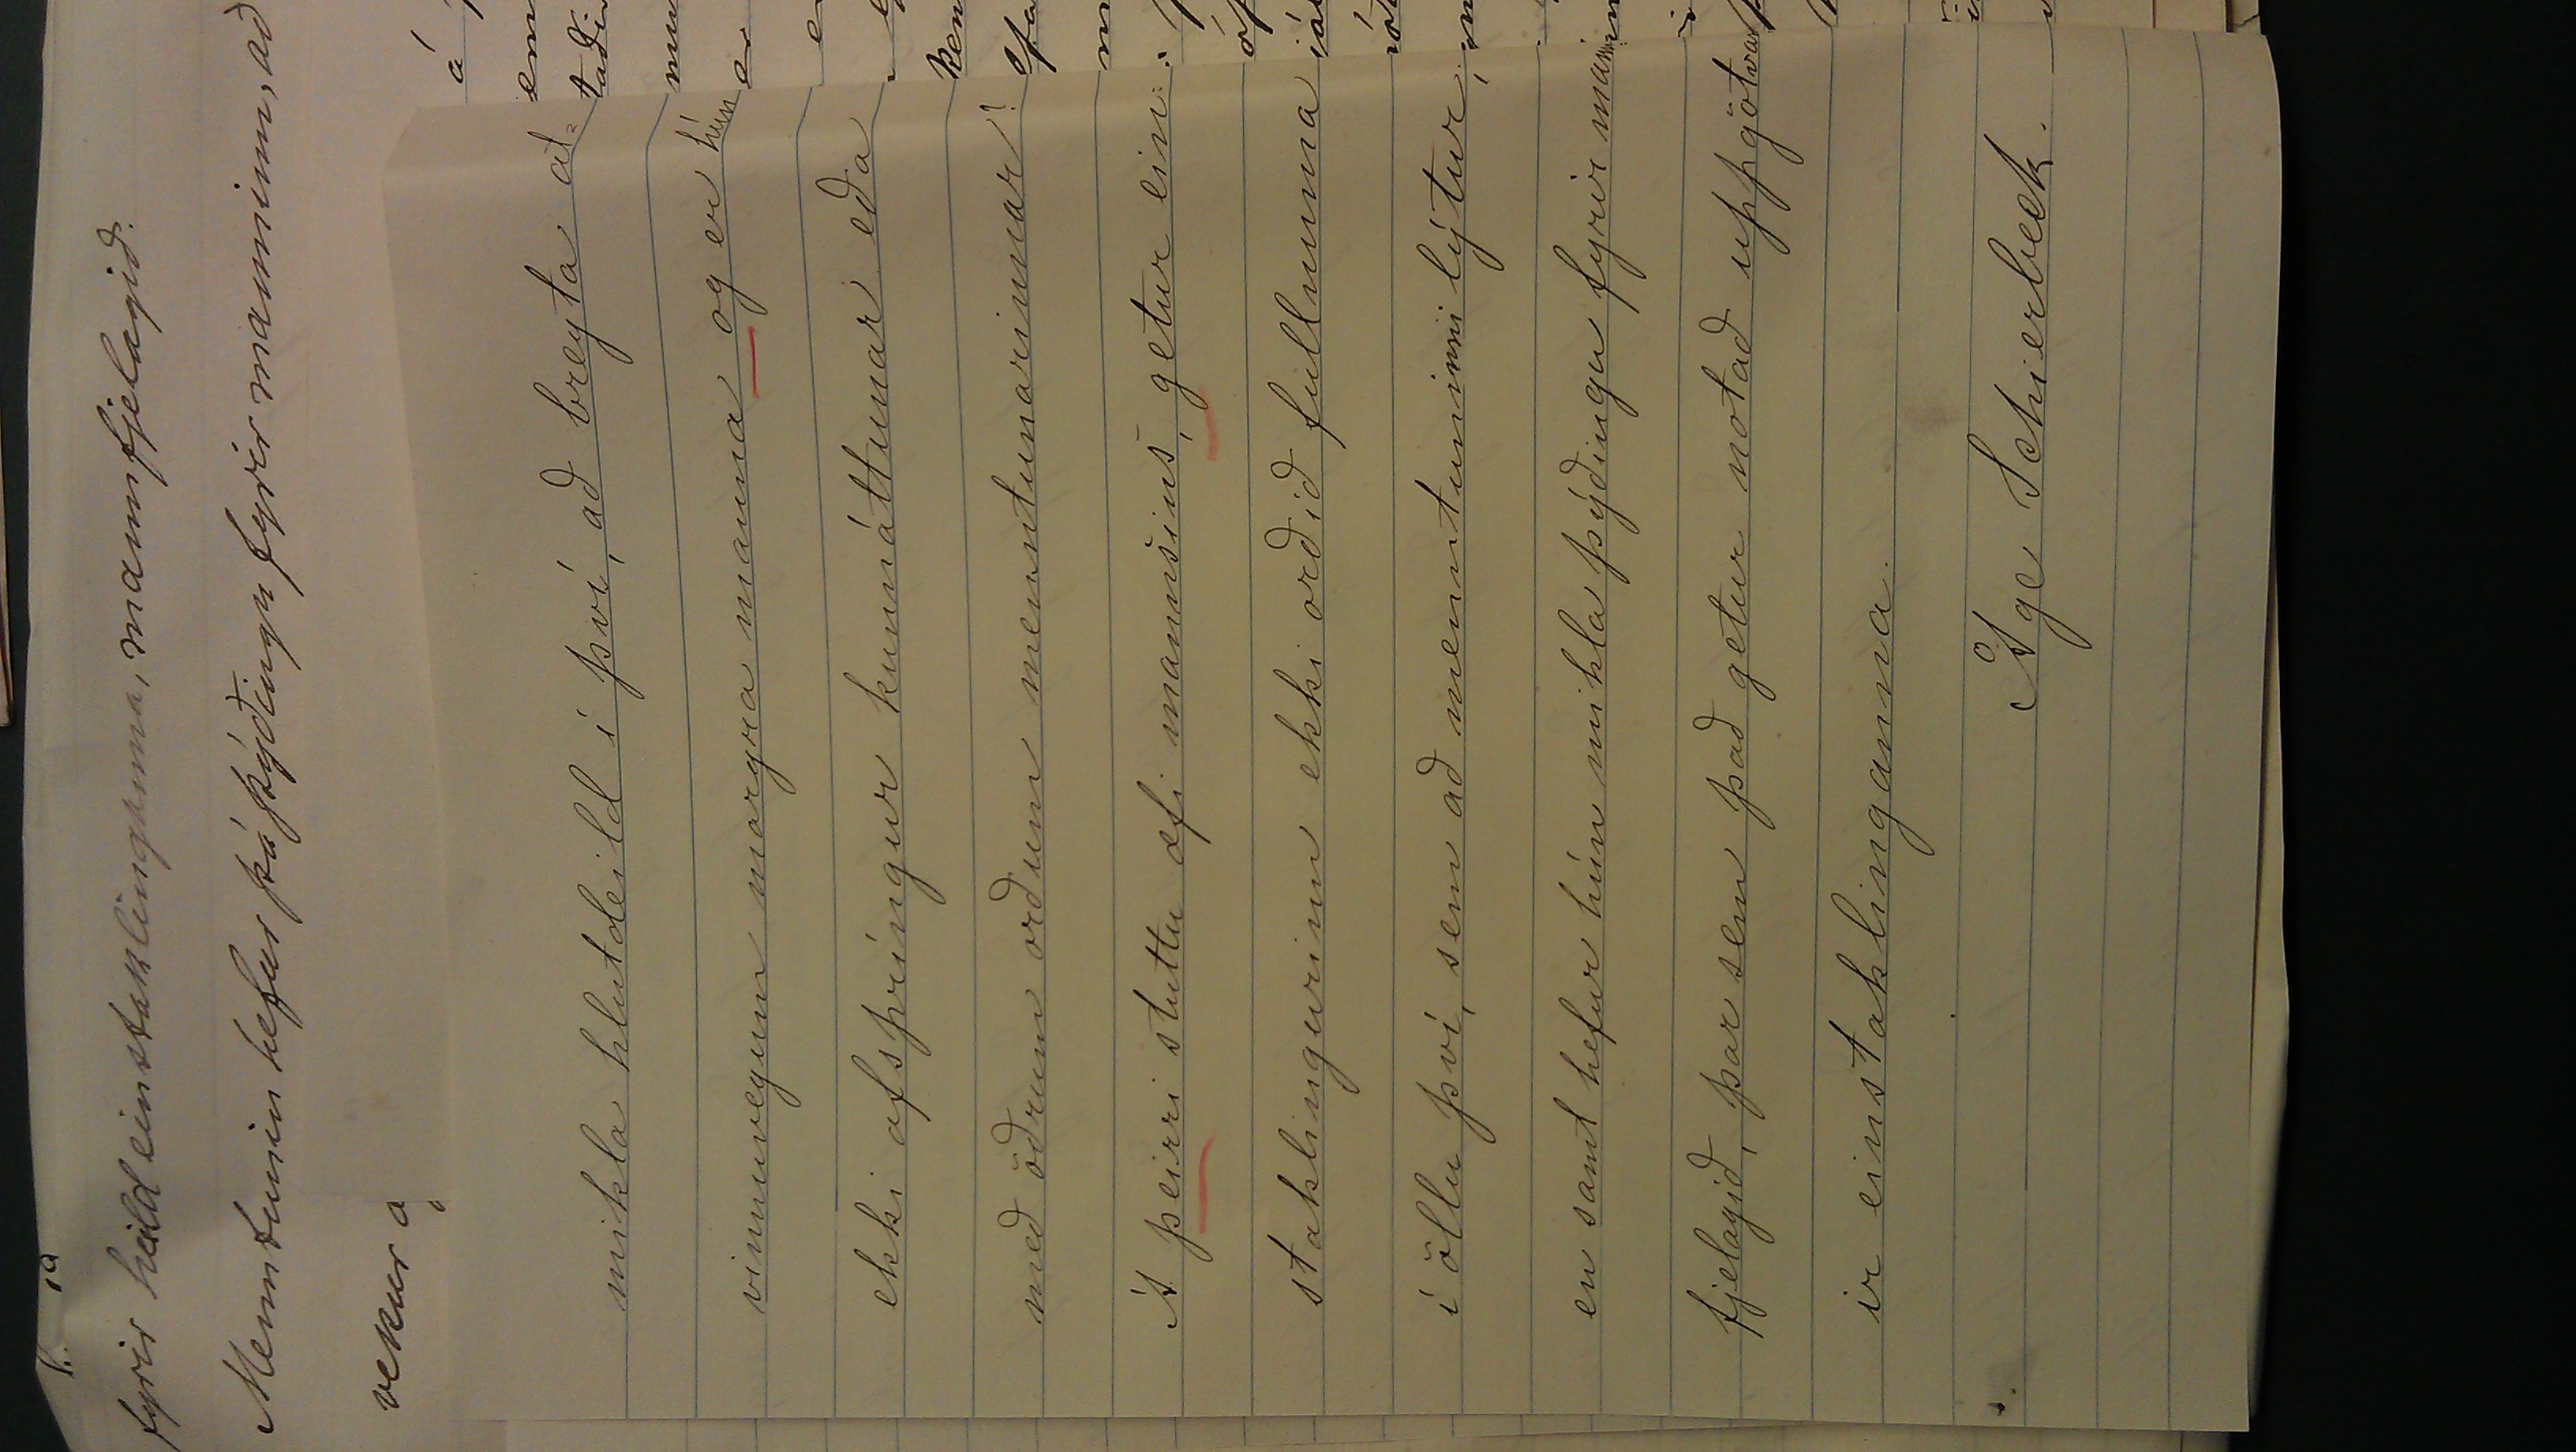 fyrir heild einstaklinganna, mannfjelagið.
Menntunin hefur þá þýðingu fyrir manninum, að
vekur a
mikla hlutdeild í því, að breyta at=
vinnuvegum margra manna og er hún
ekki afspringur kunnáttunar eða
með öðrum orðum menntunarinnar!
Á þeirri stuttu æfi mannsins, getur ein:
staklingurinn ekki orðið fullnuma
í öllu því, sem að menntuninni lýtur,
en samt hefur hún mikla þýðingu fyrir mann
fjelagið, þar sem það getur notað uppgötvan
ir einstaklinganna.
Åge Schierbeck.
á
em
taðir
mu
er
ken
efa